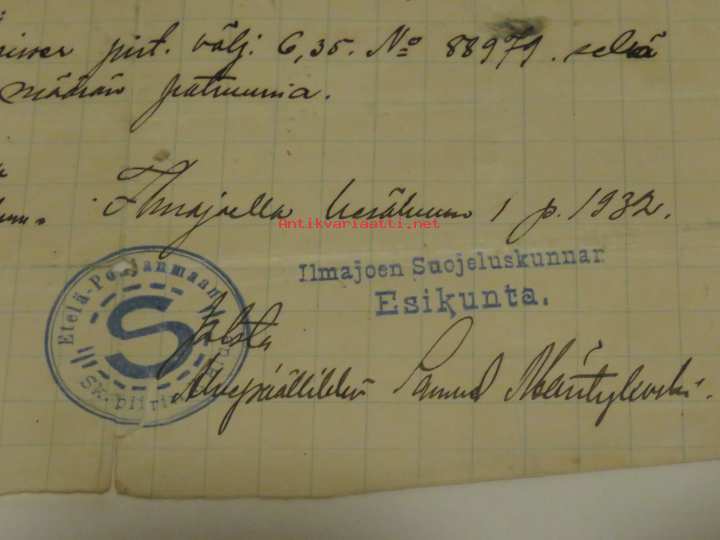 pist. välj. 6,35. No 88979. sekä
määrän patruunia.
Ilmajoella kesäkuun 1 p. 1932.
Antikvariaatti.net
Ilmajoen Suojeluskunnan
Esikunta.
Etelä-Pohjanmaan
S
Sk. piiri
Aluepäällikkö Samuel Mäntylevski.